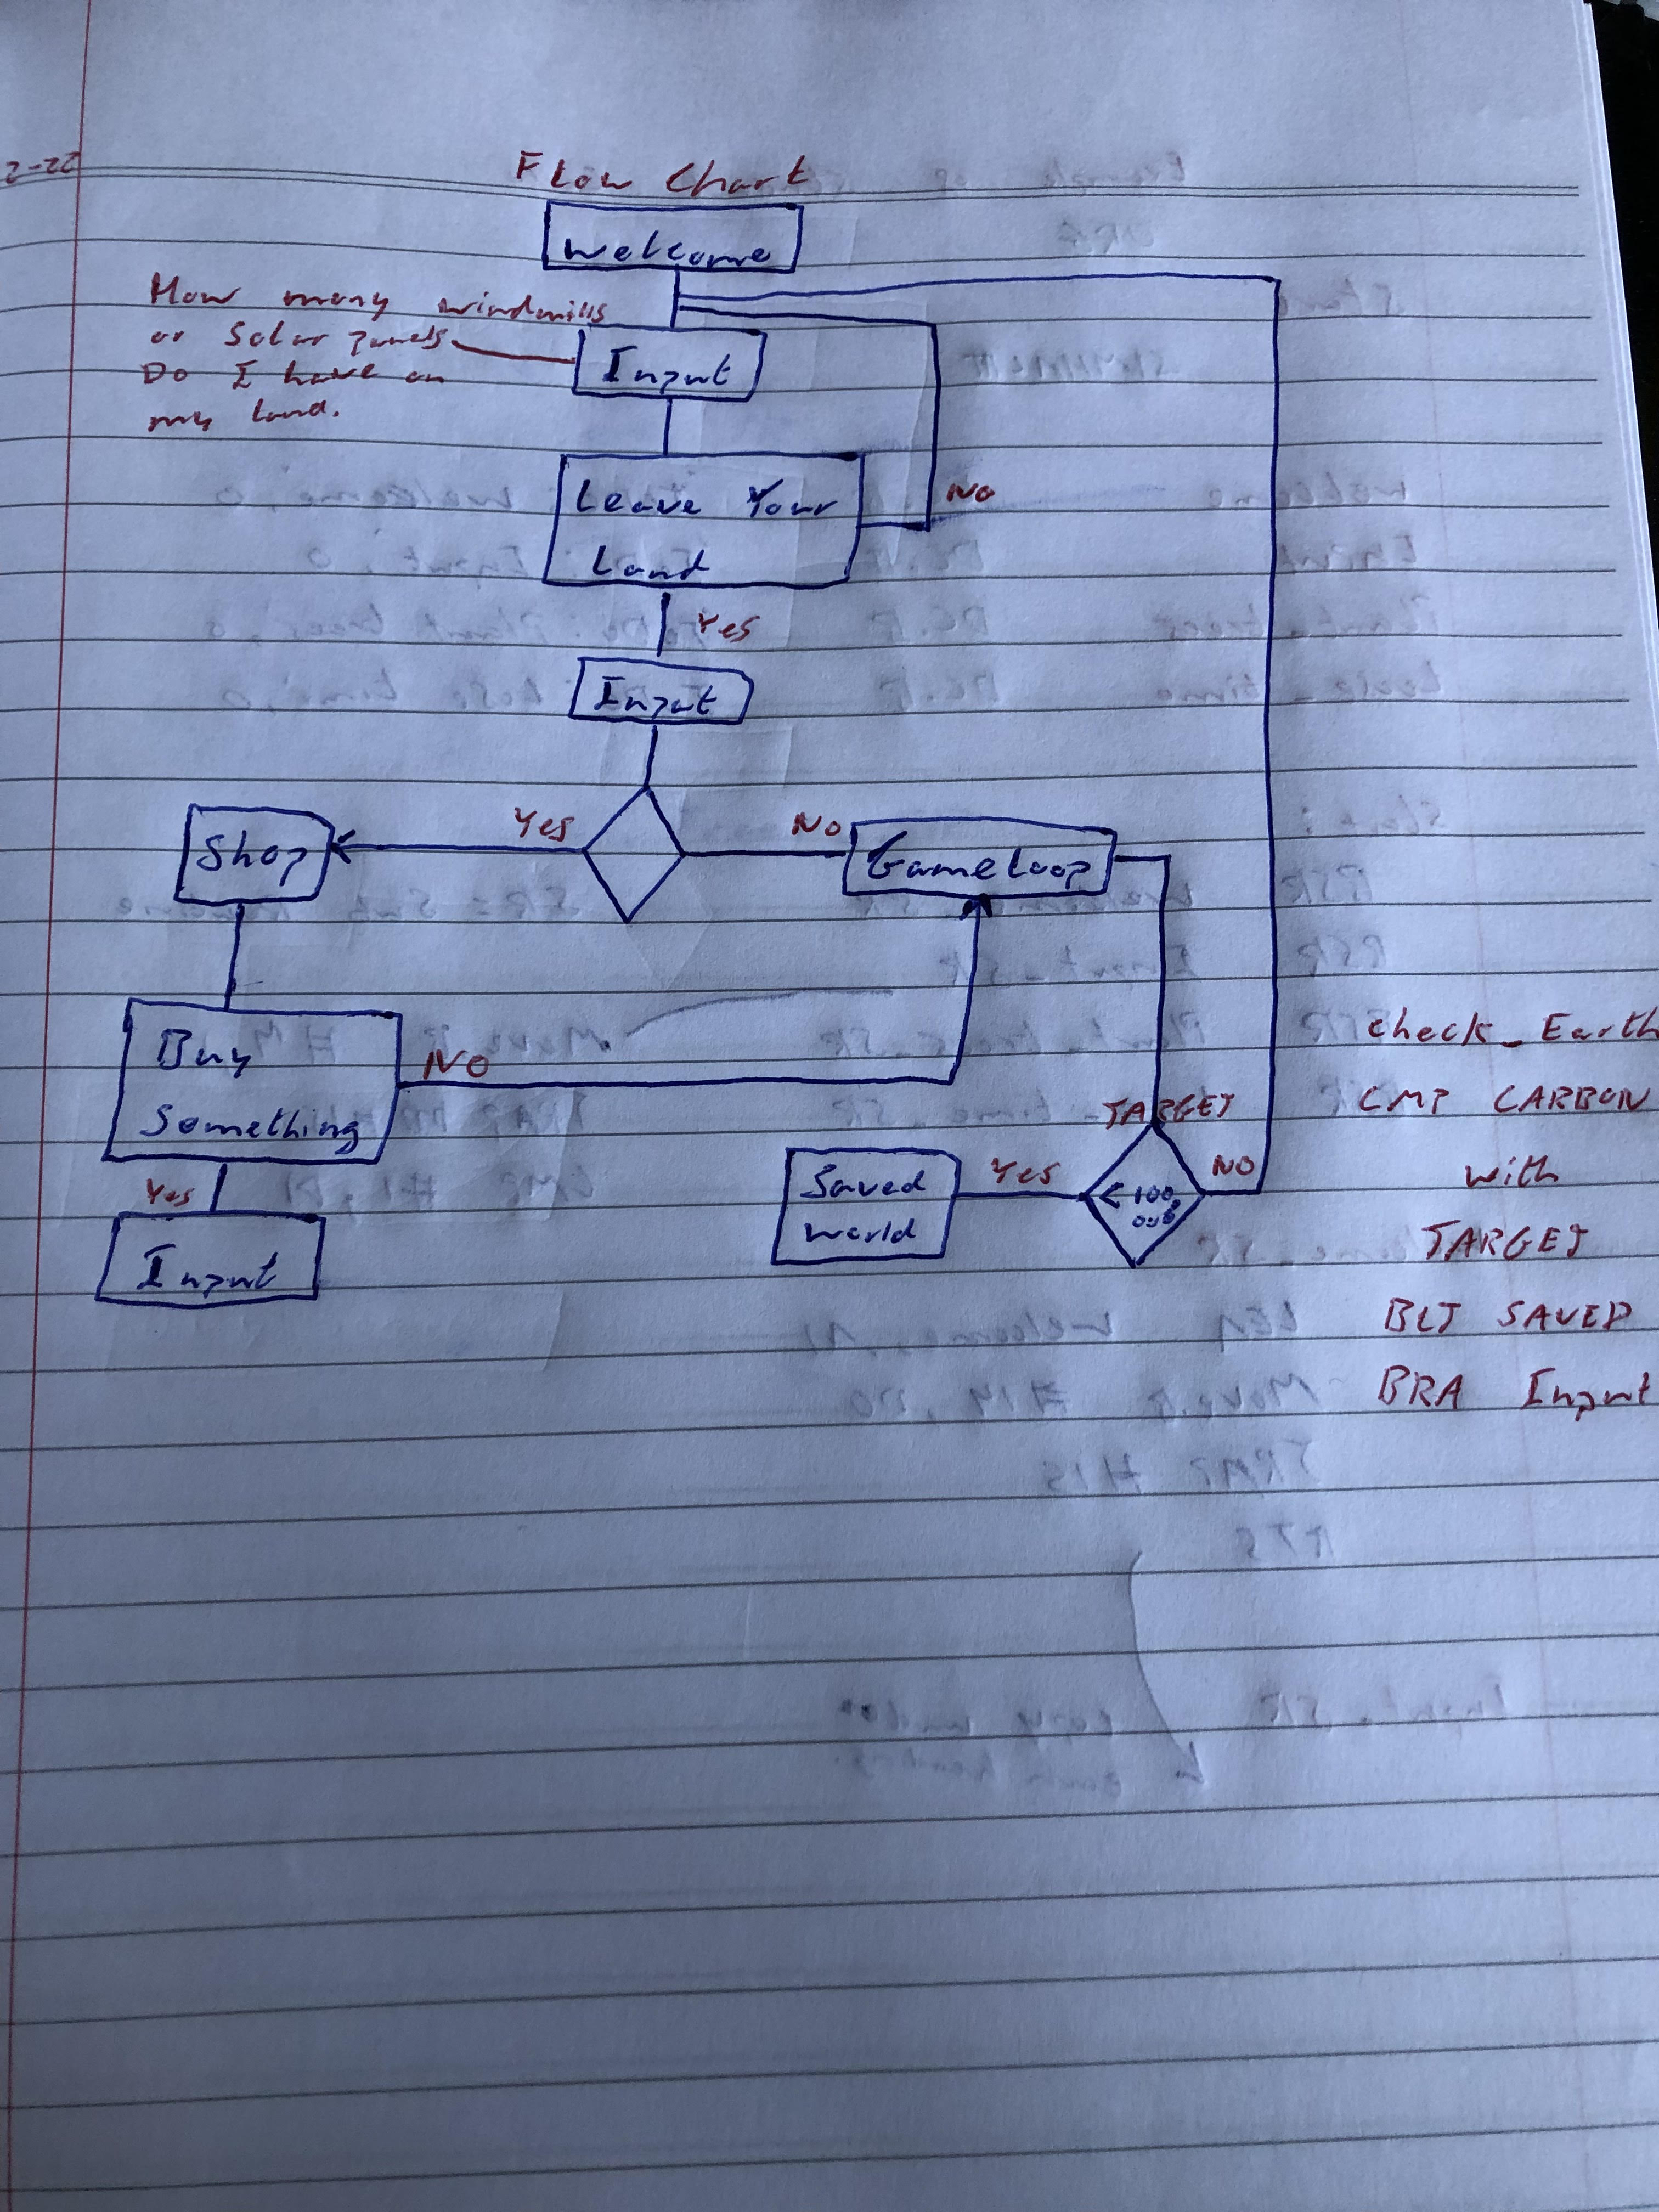 2-22
Flow Chart
Welcome
How many windmills
or Solar panels
Do I have on
my land.
Input
Leave Your
Land
No
Yes
Input
Yes
No
Shop
GameLoop
Buy
Something
No
Yes
Input
TARGET
Saved
world
Yes
< 100,
NO
check_Earth
CMP CARBON
with
TARGET
BLT SAVED
BRA Input